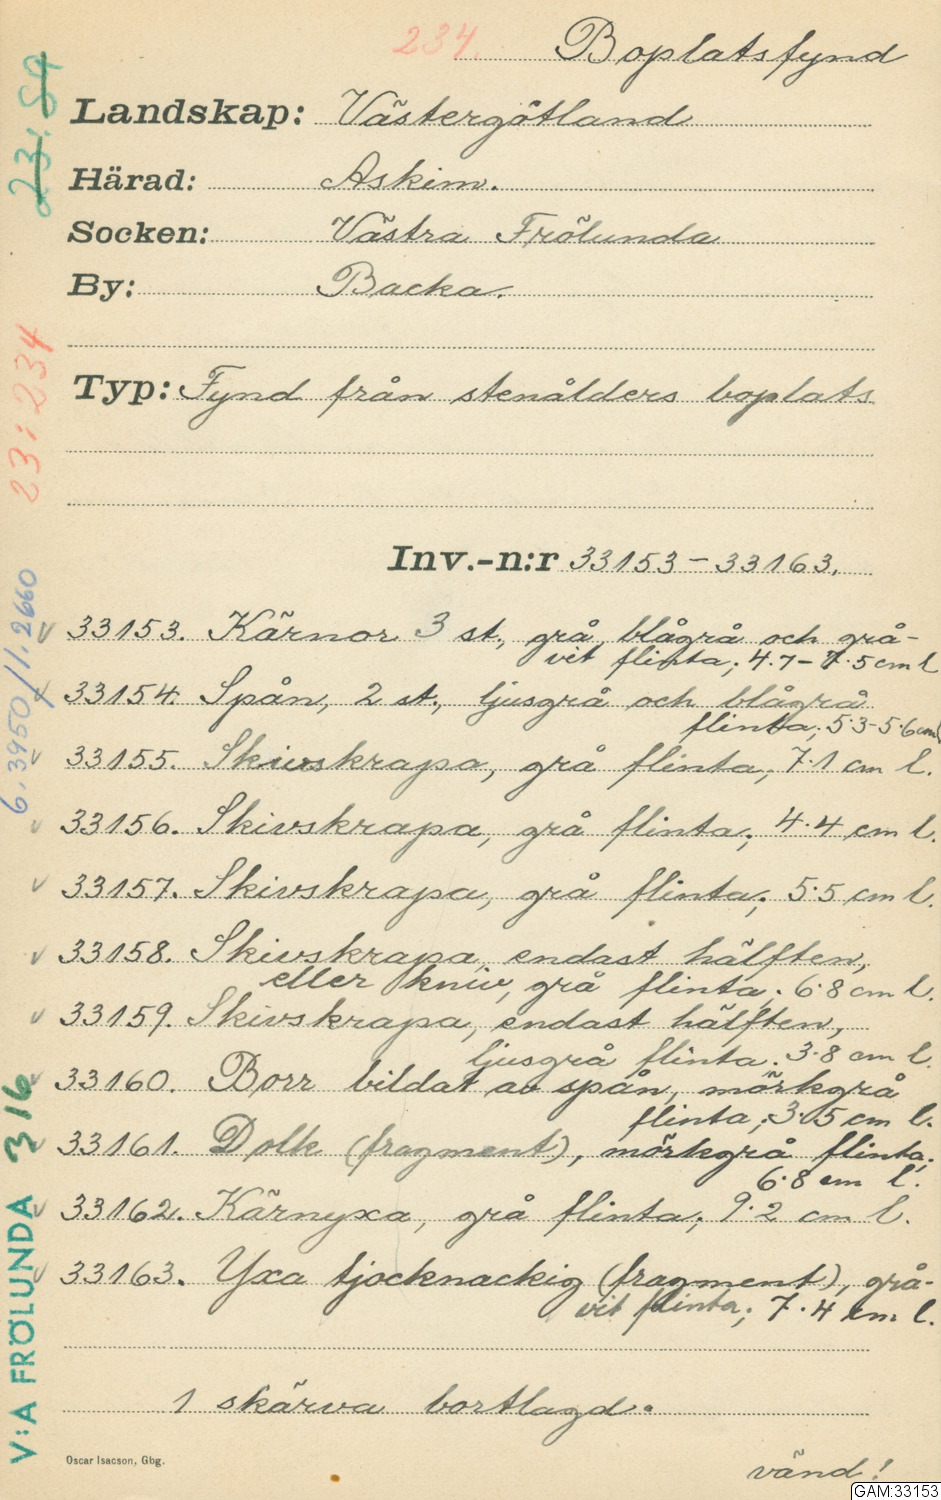 234. Boplatsfynd
Landskap: Västergötland
Härad: Askim.
Socken: Västra Frölunda
By: Backa.
Typ: Fynd från stenålders boplats
Inv.-n:r 33153-33163.
33153. Kärnor 3 st., grå, blågrå och grå-
vit flinta; 4.7-7.5 cm l
33154. Spån, 2 st., ljusgrå och blågrå
flinta; 5.3-5.6 cm l
33155. Skivskrapa, grå flinta; 7.1 cm l.
33156. Skivskrapa, grå flinta; 4.4 cm l.
33157. Skivskrapa, grå flinta; 5.5 cm l.
33158. Skivskrapa, endast hälften,
eller kniv, grå flinta; 6.8 cm l.
33159. Skivskrapa, endast hälften,
ljusgrå flinta. 3.8 cm l.
33160. Borr bildat av spån, mörkgrå
flinta; 3.5 cm l.
33161. Dolk (fragment), mörkgrå flinta;
6.8 cm l.
33162. Kärnyxa, grå flinta; 9.2 cm l.
33163. Yxa tjocknackig (fragment), grå-
vit flinta; 7.4 cm l.
1 skärva bortlagd.
Oscar Isacson, Gbg.
vänd!
23:89
23:234
6.3950/1.2660
V:A FRÖLUNDA 316
GAM:33153